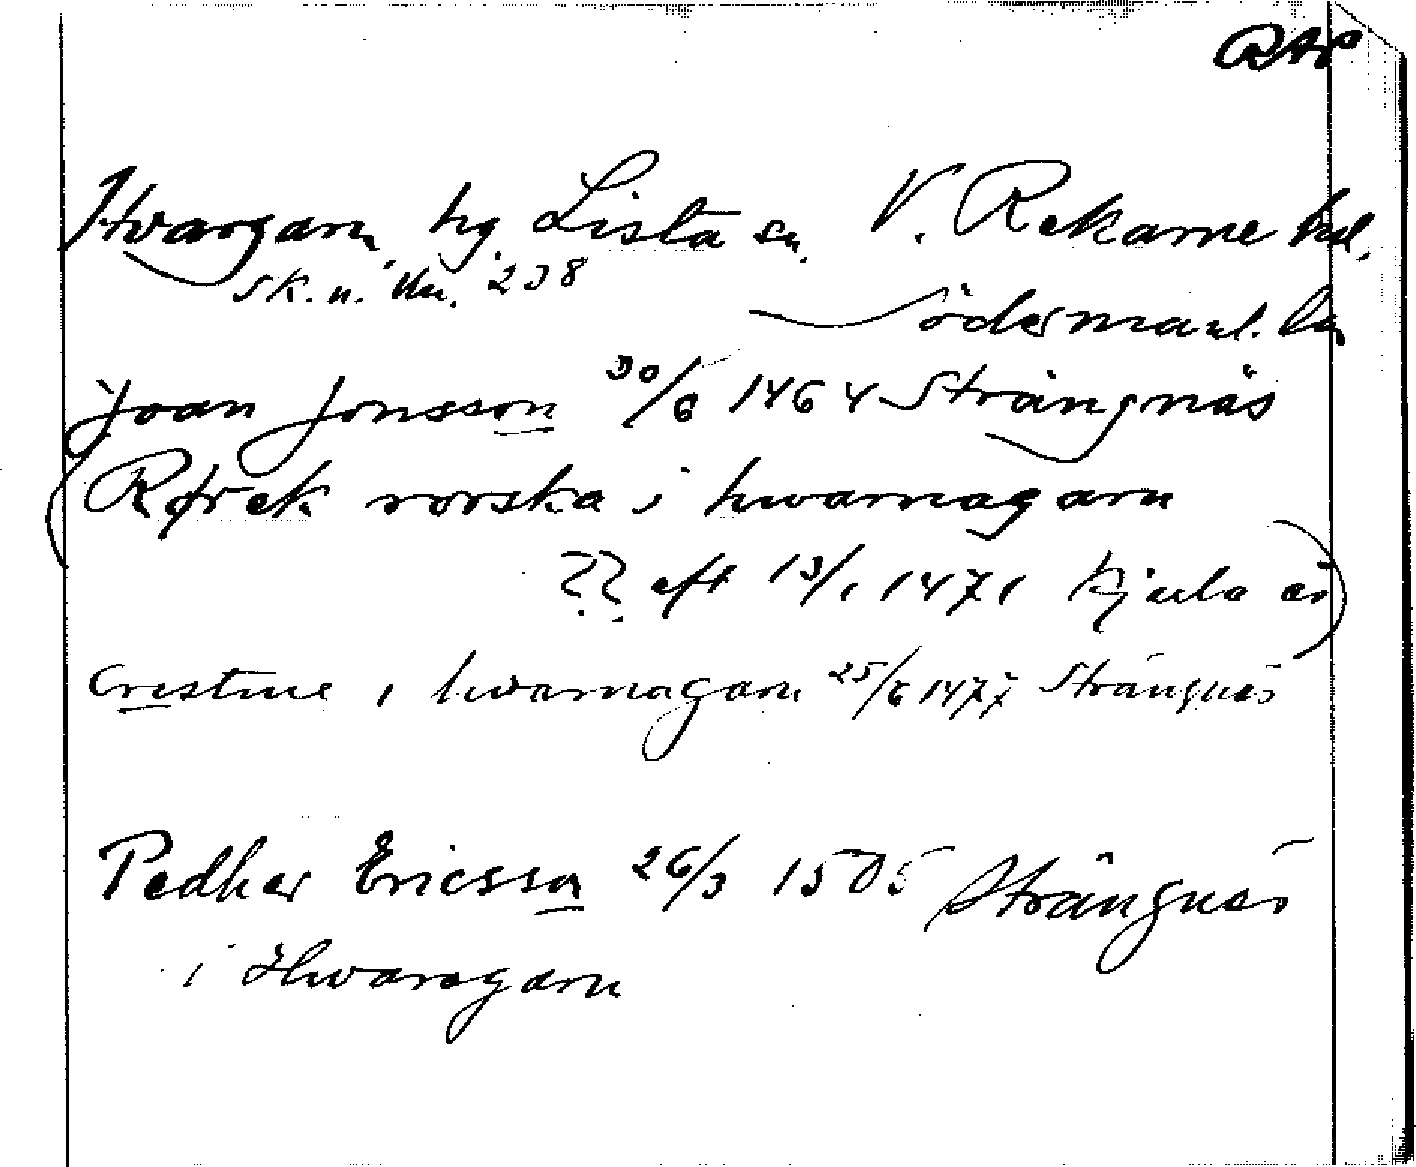 RAP
Hvargarn, hg. Lista sn, V. Rekarne hd.
SK. n. Nu. 238
Södermanl. län
Joan Jonsson 30/6 1464 Strängnäs
(R frek norska i hwarnagarn
?? eft 13/1 1471 Kjula sn)
Cristine i hwarnagarn 25/6 1477 Strängnäs
Pedher Ericsson 26/3 1505 Strängnäs
i Hwaragarn